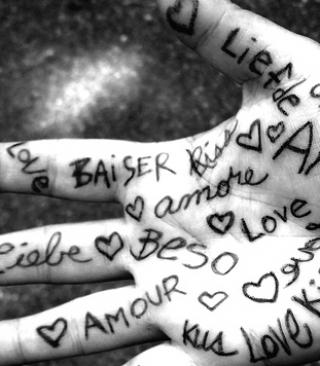 Liefde
Love
BAISER
Kiss
amore
Love
Liebe
Beso
AMOUR
Kus
LOVE